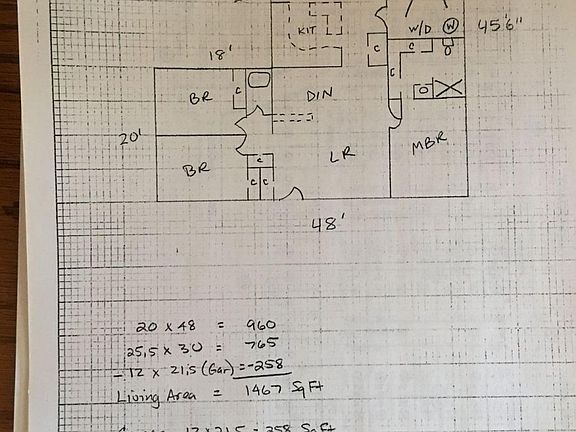 KIT
W/D W
45'6"
C
C
18'
C
C
BR
DIN
O
20'
MBR
LR
C
BR
C C
48'
20 x 48 = 960
25,5 x 30 = 765
- 12 x 21,5 (Gar) = -258
Living Area = 1467 Sq Ft
12 x 21.5 = 258 Sq Ft